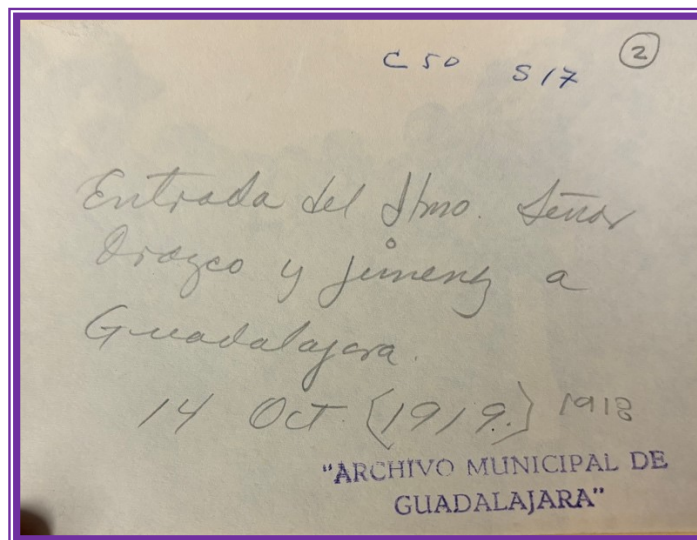 C 50 S17 2
Entrada del Ilmo. Señor
Orozco y Jimenez a
Guadalajara.
14 Oct. (1919.) 1918
"ARCHIVO MUNICIPAL DE
GUADALAJARA"